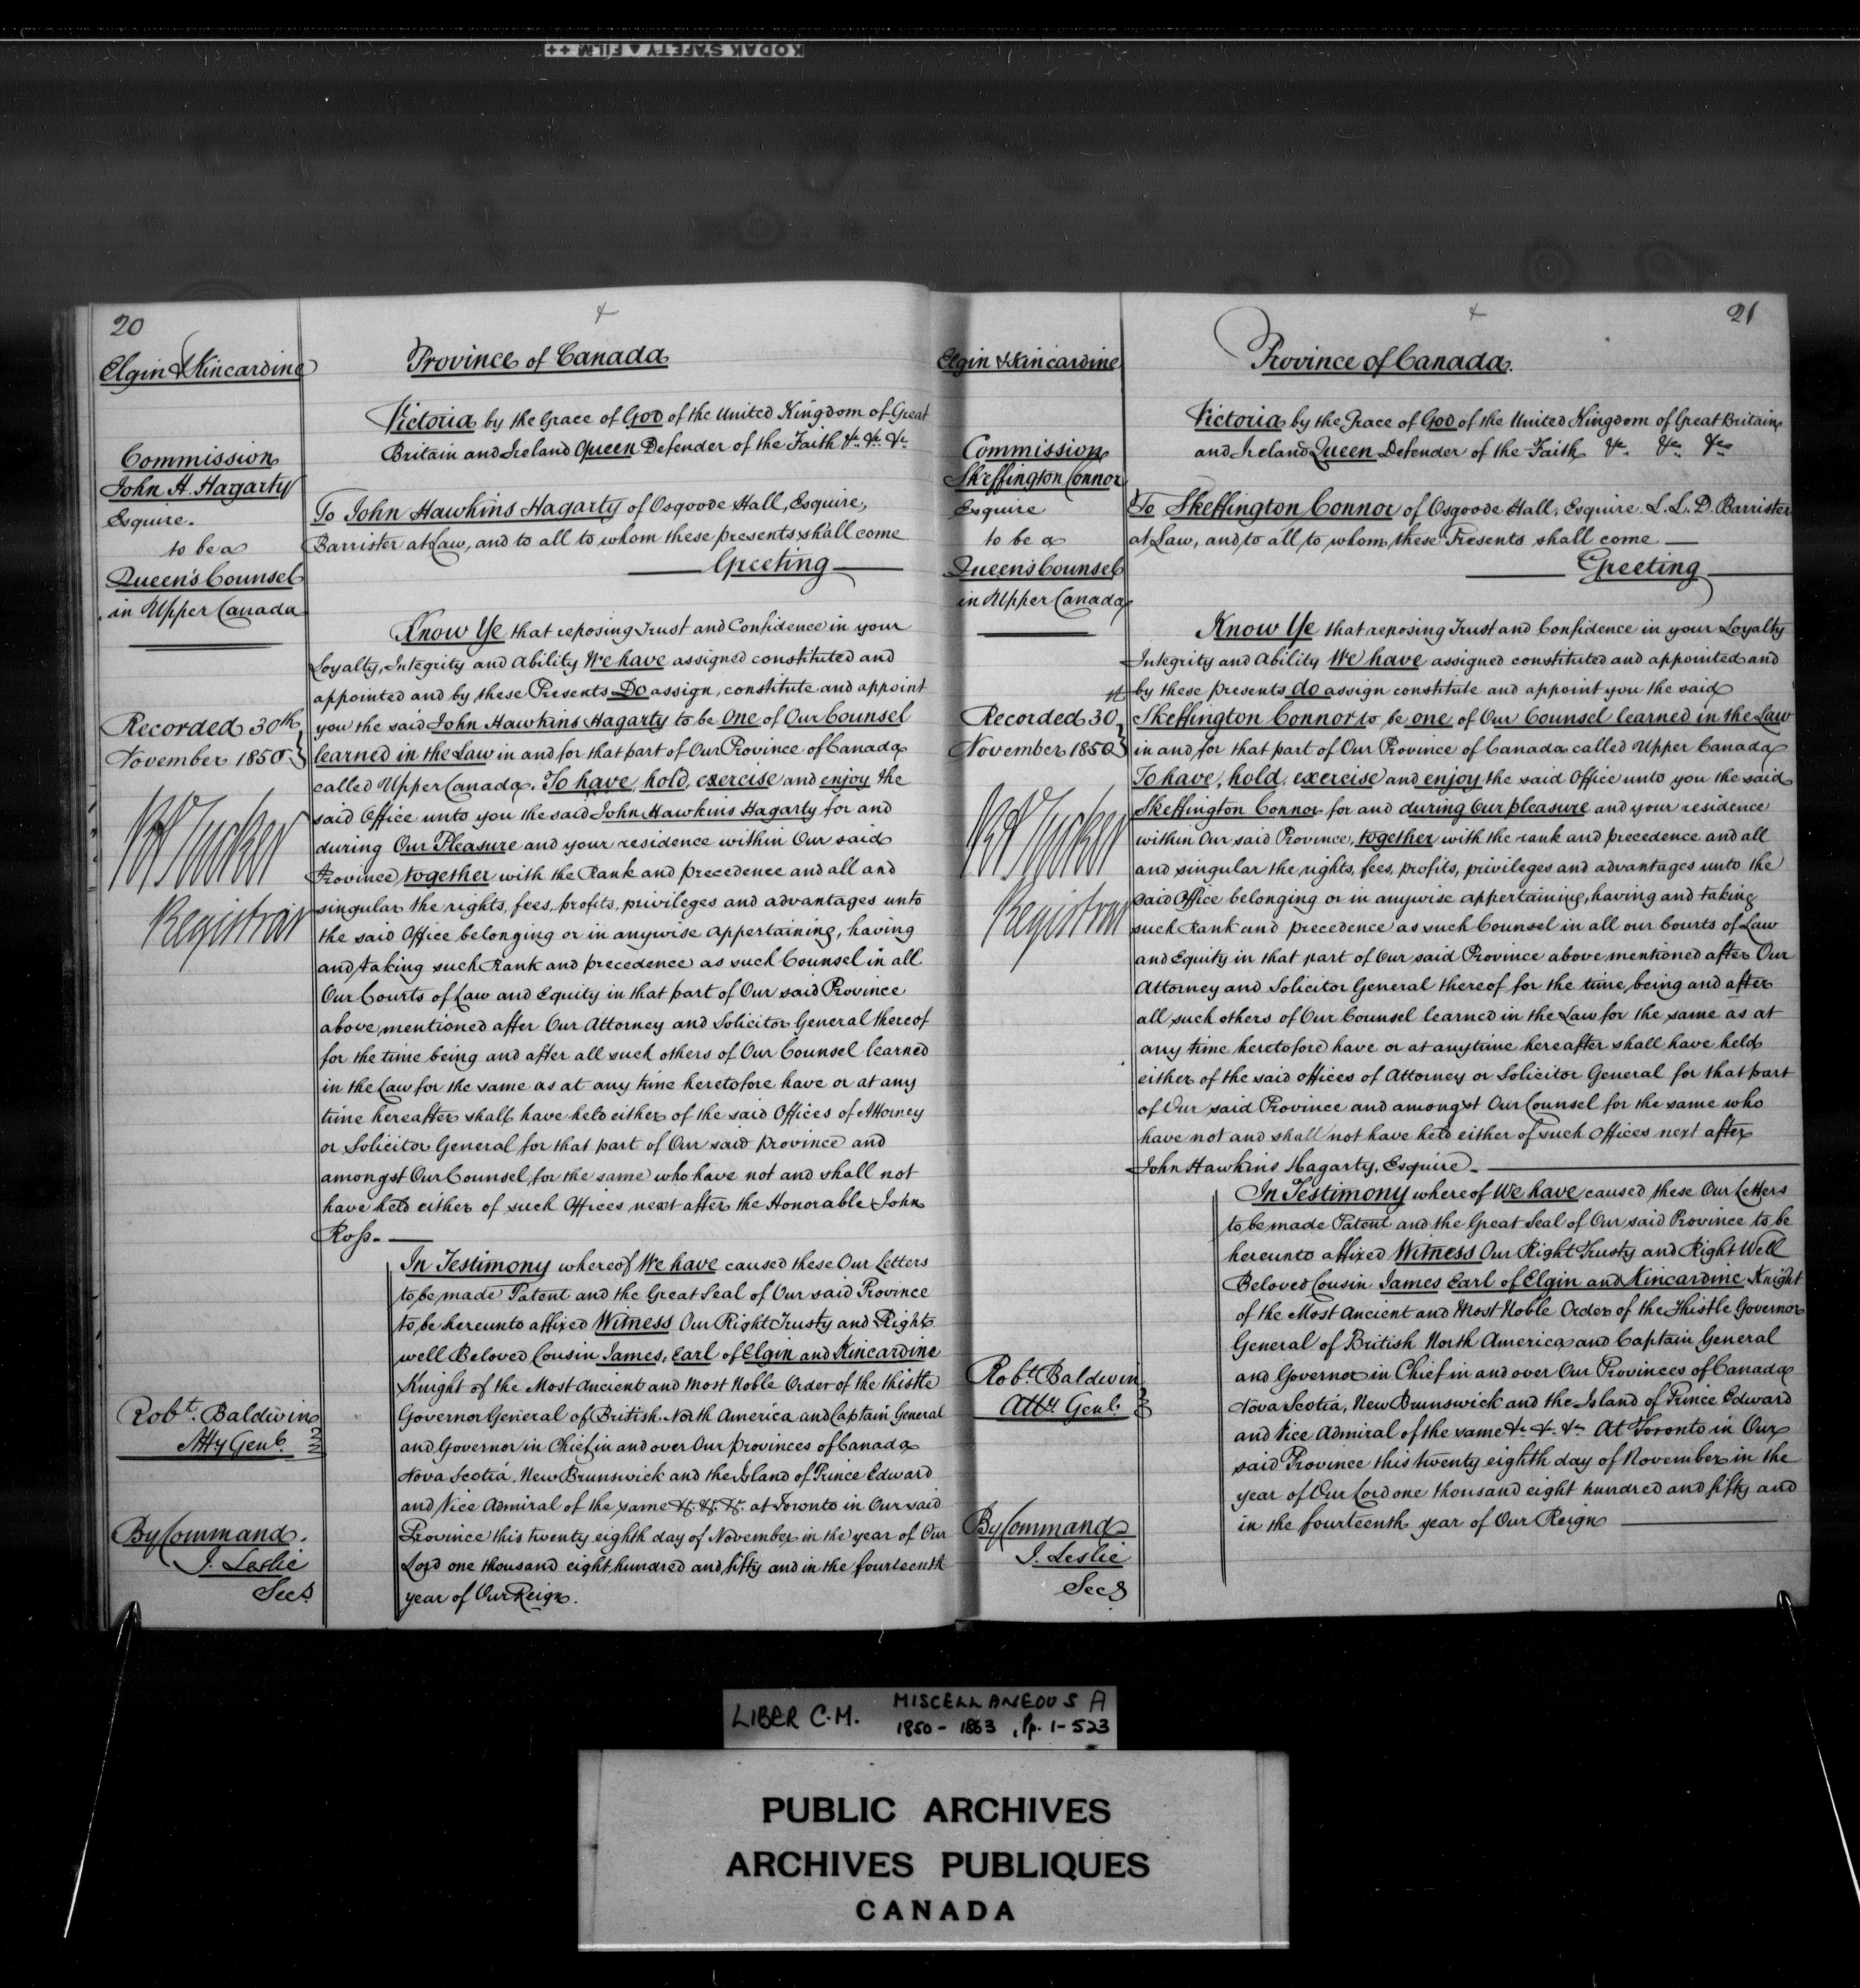 KODAK SAFETY ▲ FILM ++
20
Elgin & Kincardine
Commission
John H. Hagarty
Esquire.
to be a
Queen's Counsel
in Upper Canada
Recorded 30th
November 1850
Tucker
Registrar
Robt. Baldwin
Atty Genl.
By Command.
J. Leslie
Secy
Province of Canada
Victoria by the Grace of God of the United Kingdom of Great
Britain and Ireland Queen Defender of the Faith &c. &c. &c.
To John Hawkins Hagarty of Osgoode Hall, Esquire,
Barrister at Law, and to all to whom these presents shall come
Greeting
Know Ye that reposing Trust and Confidence in your
Loyalty, Integrity and Ability We have assigned constituted and
appointed and by these Presents Do assign, constitute and appoint
you the said John Hawkins Hagarty to be One of Our Counsel
learned in the Law in and for that part of Our Province of Canada
called Upper Canada. To have, hold, exercise and enjoy the
said Office unto you the said John Hawkins Hagarty for and
during Our Pleasure and your residence within Our said
Province together with the Rank and precedence and all and
singular the rights, fees, profits, privileges and advantages unto
the said Office belonging or in anywise appertaining, having
and taking such Rank and precedence as such Counsel in all
Our Courts of Law and Equity in that part of Our said Province
above mentioned after Our Attorney and Solicitor General thereof
for the time being and after all such others of Our Counsel learned
in the Law for the same as at any time heretofore have or at any
time hereafter shall have held either of the said Offices of Attorney
or Solicitor General for that part of Our said province and
amongst Our Counsel for the same who have not and shall not
have held either of such Offices next after the Honorable John
Ross.
In Testimony whereof We have caused these Our Letters
to be made Patent and the Great Seal of Our said Province
to be hereunto affixed Witness Our Right Trusty and Right
well Beloved Cousin James, Earl of Elgin and Kincardine
Knight of the Most Ancient and Most Noble Order of the Thistle
Governor General of British North America and Captain General
and Governor in Chief in and over Our provinces of Canada
Nova Scotia, New Brunswick and the Island of Prince Edward
and Vice Admiral of the same &c. &c. &c. at Toronto in Our said
Province this twenty eighth day of November in the year of Our
Lord one thousand eight hundred and fifty and in the fourteenth
year of Our Reign.
21
Elgin & Kincardine
Commission
Skeffington Connor
Esquire
to be a
Queen's Counsel
in Upper Canada
Recorded 30
November 1850
Tucker
Registrar
Robt. Baldwin
Atty Genl.
By Command
J. Leslie
Secy
Province of Canada.
Victoria by the Grace of God of the United Kingdom of Great Britain
and Ireland Queen Defender of the Faith &c. &c. &c.
To Skeffington Connor of Osgoode Hall, Esquire. L.L.D. Barrister
at Law, and to all to whom these Presents shall come
Greeting
Know Ye that reposing Trust and Confidence in your Loyalty
Integrity and Ability We have assigned constituted and appointed and
by these presents do assign constitute and appoint you the said
Skeffington Connor to be one of Our Counsel learned in the Law
in and for that part of Our Province of Canada called Upper Canada
To have, hold, exercise and enjoy the said Office unto you the said
Skeffington Connor for and during Our pleasure and your residence
within Our said Province, together with the rank and precedence and all
and singular the rights, fees, profits, privileges and advantages unto the
said Office belonging or in anywise appertaining, having and taking
such Rank and precedence as such Counsel in all our Courts of Law
and Equity in that part of Our said Province above mentioned after Our
Attorney and Solicitor General thereof for the time being and after
all such others of Our Counsel learned in the Law for the same as at
any time heretofore have or at anytime hereafter shall have held
either of the said offices of Attorney or Solicitor General for that part
of Our said Province and amongst Our Counsel for the same who
have not and shall not have held either of such Offices next after
John Hawkins Hagarty, Esquire.
In Testimony whereof We have caused these Our Letters
to be made Patent and the Great Seal of Our said Province to be
hereunto affixed Witness Our Right Trusty and Right Well
Beloved Cousin James Earl of Elgin and Kincardine Knight
of the Most Ancient and Most Noble Order of the Thistle Governor
General of British North America and Captain General
and Governor in Chief in and over Our Provinces of Canada
Nova Scotia, New Brunswick and the Island of Prince Edward
and Vice Admiral of the same &c. &c. &c. At Toronto in Our
said Province this twenty eighth day of November in the
year of Our Lord one thousand eight hundred and fifty and
in the fourteenth year of Our Reign
LIBER C.M. MISCELLANEOUS A
1850-1863, Pp. 1-523
PUBLIC ARCHIVES
ARCHIVES PUBLIQUES
CANADA